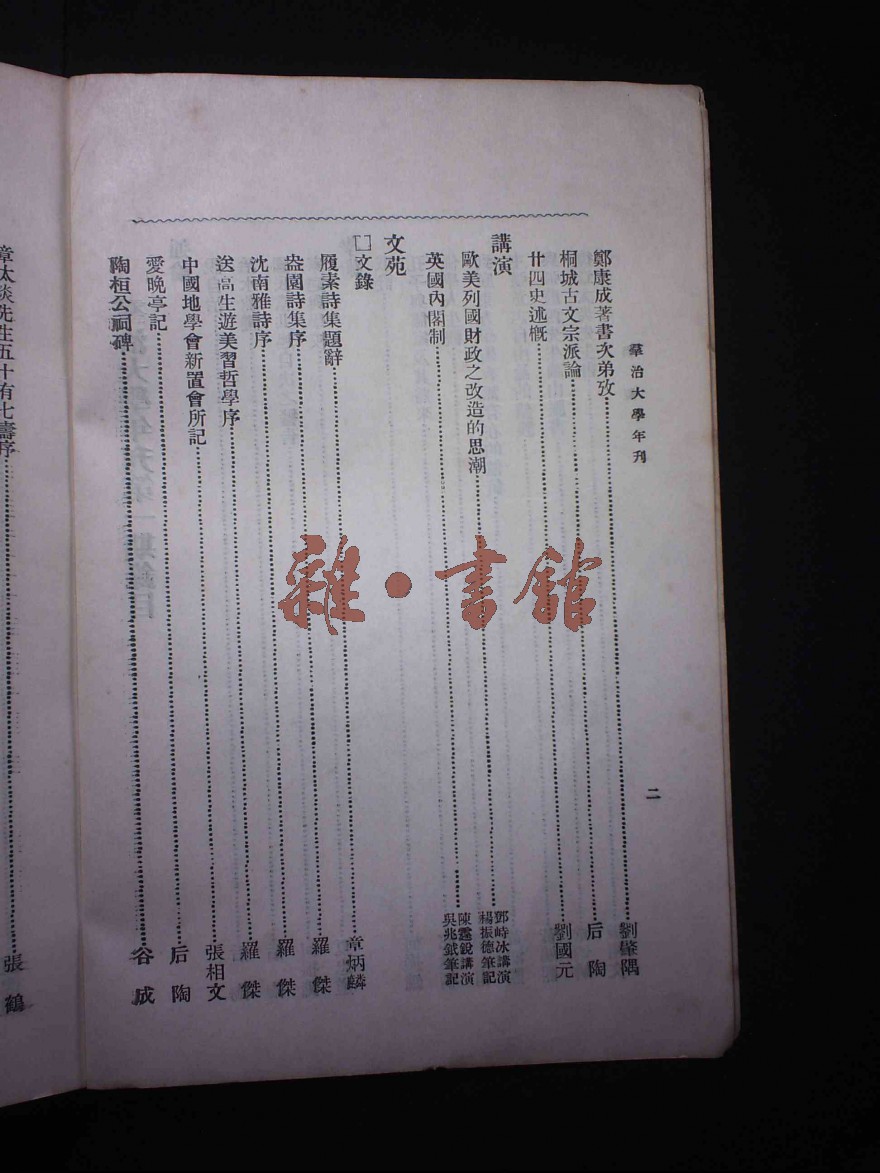 羣治大學年刊
二
鄭康成著書次弟攷 劉肇隅
桐城古文宗派論 后陶
廿四史述慨 劉國元
講演
歐美列國財政之改造的思潮 鄧峙冰講演 楊振德筆記
英國內閣制 陳霆銳講演 吳兆鉞筆記
文苑
[]文錄
履素詩集題辭 章炳麟
盇園詩集序 羅傑
沈南雅詩序 羅傑
送高生遊美習哲學序 羅傑
中國地學會新置會所記 張相文
愛晚亭記 后陶
陶桓公祠碑 谷成
章太炎先生五十有七壽序 張鶴
雜·書館